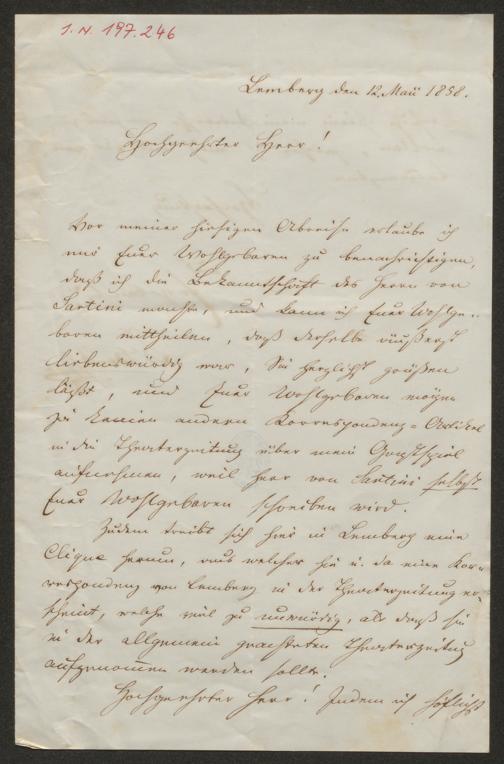 I. N. 197.246
Lemberg den 12. Maii 1858.
Hochgeehrter Herr!
Vor meiner hiesigen Abreise erlaube ich
mir Euer Wohlgeboren zu benachrichtigen,
daß ich die Bekanntschaft des Herrn von
Sartini machte, und kann ich Euer Wohlge-
boren mittheilen, daß derselbe äußerst
liebenswürdig war, Sie herzlichst grüßen
läßt, und Euer Wohlgeboren mögen
ja keinen andern Korrespondenz-Artikel
in die Theaterzeitung über mein Gastspiel
aufnehmen, weil Herr von Sartini selbst
Euer Wohlgeboren schreiben wird.
Zudem treibt sich hier in Lemberg eine
Clique herum, aus welcher hie u. da eine Kor-
respondenz von Lemberg in der Theaterzeitung er-
scheint, welche viel zu unwürdig, als daß sie
in der allgemein geachteten Theaterzeitung
aufgenommen werden sollte.
Hochgeehrter Herr! Indem ich höflichst